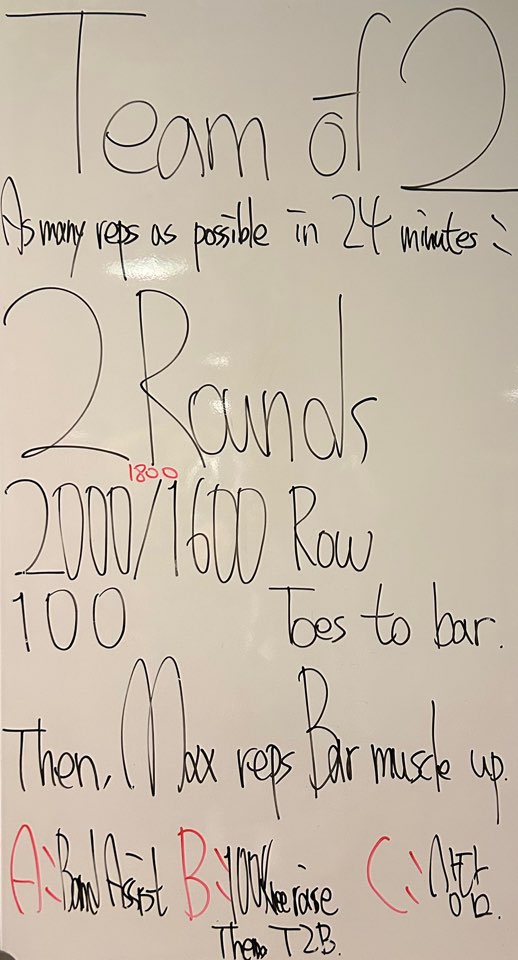 Team of 2
As many reps as possible in 24 minutes :
2 Rounds
1800
2000/1600 Row
100 Toes to bar.
Then, Max reps Bar muscle up.
A: Band Assist B: 100 Knee raise C: 상담
Then T2B.